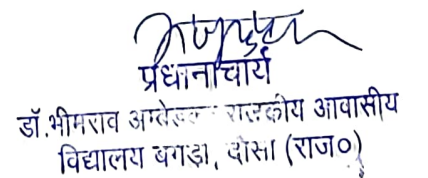 प्रधानाचार्य
डॉ.भीमराव अम्बेडकर राजकीय आवासीय
विद्यालय बगड़ा, दौसा (राज०)